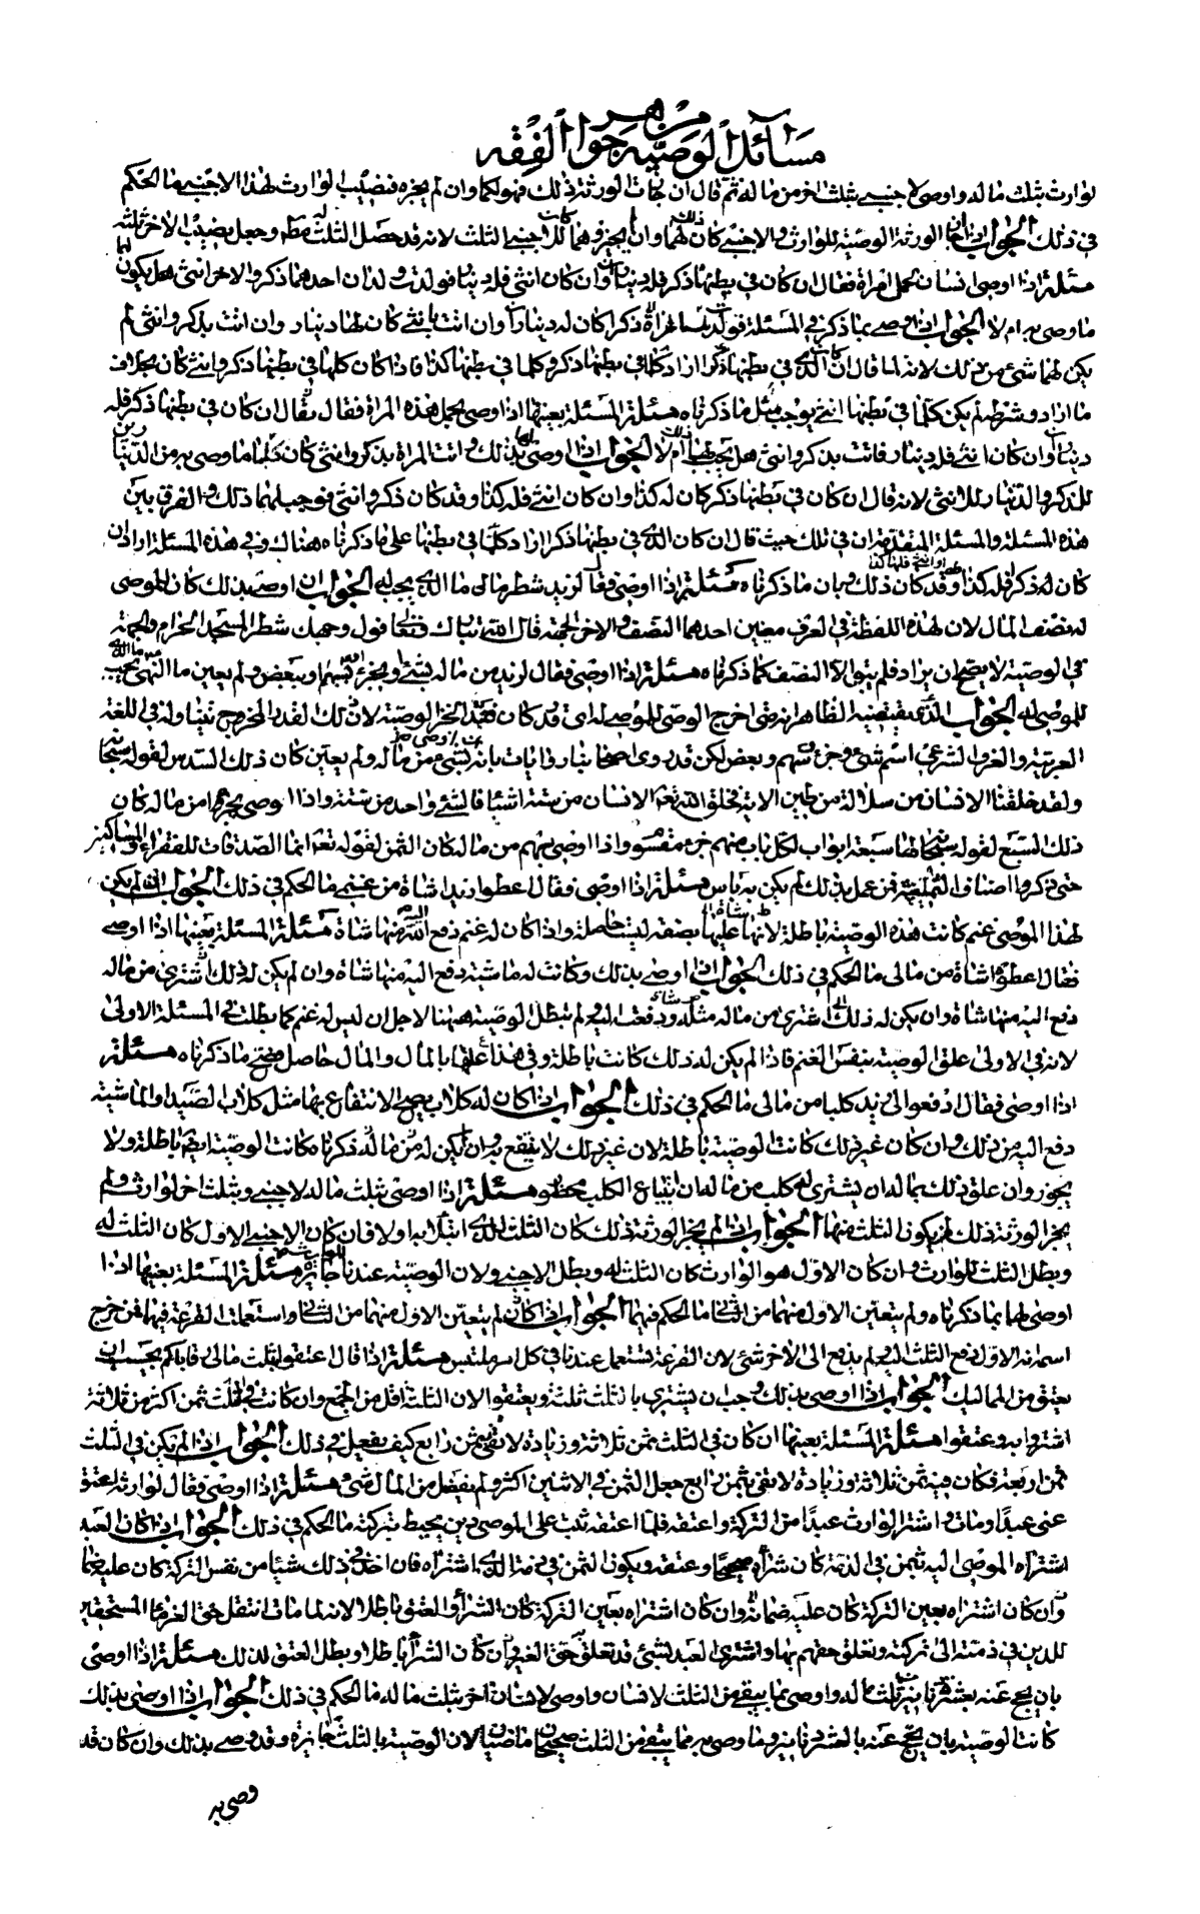 مسائل الوصية من جواهر الفقه
لوارث بثلث ماله واوصى لاجنبي بثلث اخر من ماله ثم قال ان اجازت الورثة ذلك فهو لكما وان لم يجزه فنصيب الوارث لهذا الاجنبي ما الحكم
في ذلك الجواب اذا اجاز الورثة الوصية للوارث والاجنبي كان ذلك لهما وان لم يجيزوهما كان للاجنبي الثلث لانه قد حصل الثلث له وجعل نصيب الاخر ثلثه
مسئلة اذا اوصى انسان لحمل امرأة فقال ان كان في بطنها ذكر فله ديناران وان كان انثى فله دينار فولدت ولدان احدهما ذكر والاخر انثى هل يكون لهما
ما وصى به ام لا الجواب اذا وصى بما ذكر في المسئلة فولدت امرأة ذكرا كان له ديناران وان اتت بانثى كان لها دينار وان اتت بذكر وانثى لم
يكن لهما شئ من ذلك لانه لما قال ان كان الذي في بطنها ذكرا اراد كلما في بطنها ذكر وكلما في بطنها كذا فاذا كان كلها في بطنها ذكر وانثى كان بخلاف
ما اراد وشرطه لم يكن كلما في بطنها انثى يوجب مثل ما ذكرناه مسئلة المسئلة بعينها اذا اوصى لحمل هذه المرأة فقال ان كان في بطنها ذكر فله
ديناران وان كان انثى فله دينار فاتت بذكر وانثى هل يجب لهما ذلك ام لا الجواب اذا اوصى لها بذلك واتت المرأة بذكر وانثى كان لهما ما وصى به من الدينارين
للذكر والدينار للانثى لانه قال ان كان في بطنها ذكر كان له كذا وان كان انثى فله كذا وقد كان ذكر وانثى فوجب لهما ذلك والفرق بين
هذه المسئلة والمسئلة المتقدمة ان في تلك حيث قال ان كان الذي في بطنها ذكر اراد كلما في بطنها على ما ذكرناه هناك وفي هذه المسئلة اراد ان
كان له ذكر فله كذا او انثى فلها كذا وقد كان ذلك وبان ما ذكرناه مسئلة اذا اوصى فقال لزيد شطر مالى ما الذي يجب له الجواب ان اوصى بذلك كان للموصى
له نصف المال لان لهذه اللفظة في العرف معنيين احدهما النصف والاخر الجهة قال الله تبارك وتعالى فول وجهك شطر المسجد الحرام والجهة
في الوصية لا يصح ان يراد فلم يبق الا النصف كما ذكرناه مسئلة اذا اوصى فقال لزيد من ماله شئ او جزء او سهم او بعض ولم يعين ما الذي يجب
للموصى له الجواب الذي يقتضيه الظاهر انه متى اخرج الوصى للموصى له اى قدر كان فقد انجز الوصية لان ذلك القدر المخرج تتناوله في اللغة
العربية والعرف الشرعي اسم شئ وجزء وسهم وبعض لكن قد روى اصحابنا روايات بانه ان اوصى بشئ من ماله ولم يعين كان ذلك السدس لقوله سبحانه
ولقد خلقنا الانسان من سلالة من طين الاية فخلق الله تعالى الانسان من ستة اشياء فالشئ واحد من ستة واذا اوصى بجزء من ماله كان
ذلك السبع لقوله سبحانه لها سبعة ابواب لكل باب منهم جزء مقسوم واذا اوصى بسهم من ماله كان الثمن لقوله تعالى انما الصدقات للفقراء والمساكين
حتى ذكروا اصناف الثمانية فمن عمل بذلك لم يكن به باس مسئلة اذا اوصى فقال اعطوا زيدا شاة من غنمي ما الحكم في ذلك الجواب ان لم يكن
لهذا الموصى غنم كانت هذه الوصية باطلة لانها علقها بصفة ليست حاصلة واذا كان له غنم دفع اليه منها شاة مسئلة المسئلة بعينها اذا اوصى
فقال اعطوه شاة من مالى ما الحكم في ذلك الجواب اذا اوصى بذلك وكانت له ماشية دفع اليه منها شاة وان لم يكن له ذلك اشترى من ماله
دفع اليه منها شاة وان لم يكن له ذلك اشترى من ماله مثله ودفعت اليه ولم تبطل الوصية ههنا لاجل ان ليس له غنم كما بطلت في المسئلة الاولى
لانه في الاولى علق الوصية بنفس الغنم فاذا لم يكن له ذلك كانت باطلة وفي هذا علقها بالمال والمال حاصل فصح ما ذكرناه مسئلة
اذا اوصى فقال ادفعوا الى زيد كلبا من مالى ما الحكم في ذلك الجواب اذا كان له كلاب يصح الانتفاع بها مثل كلاب الصيد او الماشية
دفع اليه من ذلك وان كان غير ذلك كانت الوصية باطلة لان غير ذلك لا ينتفع به وان لم يكن له من ماله ما ذكرناه كانت الوصية ايضا باطلة ولا
يجوز وان علق ذلك بماله ان يشترى له كلب من ماله لان ابتياع الكلب محظور مسئلة اذا اوصى بثلث ماله لاجنبي وبثلث اخر لوارث ولم
يجز الورثة ذلك لمن يكون الثلث منهما الجواب اذا لم يجز الورثة ذلك كان الثلث للذي ابتدأ به اولا فان كان الاجنبي الاول كان الثلث له
وبطل الثلث للوارث وان كان الاول هو الوارث كان الثلث له وبطل الاجنبي ولان الوصية عندنا للوارث جائزة مسئلة المسئلة بعينها اذا
اوصى لهما بما ذكرناه ولم يتعين الاول منهما من الثاني ما الحكم فيهما الجواب اذا كان لم يتعين الاول منهما من الثاني واستعملت القرعة فيهما فمن خرج
اسمه انه الاول دفع الثلث اليه ولم يدفع الى الاخر شئ لان القرعة تستعمل عندنا في كل امر ملتبس مسئلة اذا قال اعتقوا بثلث مالى رقابا كم يجب ان
يعتق من المماليك الجواب اذا اوصى بذلك وجب ان يشترى بالثلث ثلثة ويعتقوا لان الثلث اقل من الجمع وان كانت في الثلث ثمن اكثر من ثلاثة
اشتروا به وعتقوا مسئلة المسئلة بعينها ان كان في الثلث ثمن ثلاثة وزيادة لا تفي بثمن رابع كيف يفعل في ذلك الجواب اذا لم يكن في الثلث
ثمن اربعة فكان فيه ثمن ثلاثة وزيادة لا تفي بثمن رابع جعل الثمن في الاثنين اكثر ولم يفضل من المال شئ مسئلة اذا اوصى فقال لوارثه اعتق
عنى عبدا ومات واشترى الوارث عبدا من التركة واعتقه فلما اعتقه ثبت على الموصى دين يحيط بتركته ما الحكم في ذلك الجواب اذا كان العبد
اشتراه الموصى اليه بثمن في الذمة كان شراؤه صحيحا وعتقه ويكون الثمن في ذمة الذي اشتراه فان اخذ في ذلك شيئا من نفس التركة كان عليه ضمانا
وان كان اشتراه بعين التركة كان عليه ضمانه وان كان اشتراه بعين التركة كان الشراء والعتق باطلا لانه لما مات انتقل حق الغرماء المستحقين
للدين في ذمته الى تركته وتعلق حقهم بها واشترى العبد بشئ قد تعلق حق الغير به كان الشراء باطلا وبطل العتق لذلك مسئلة اذا اوصى
بان يحج عنه بعشرة دنانير من ثلث ماله واوصى بما يبقى من الثلث لانسان واوصى لانسان اخر بثلث ماله ما الحكم في ذلك الجواب اذا اوصى بذلك
كانت الوصية بان يحج عنه بالعشرة دنانير وما وصى به مما يبقى من الثلث صحيحان ماضيان لان الوصية بالثلث جائزة وقد وصى بذلك وان كان قد
وصى به